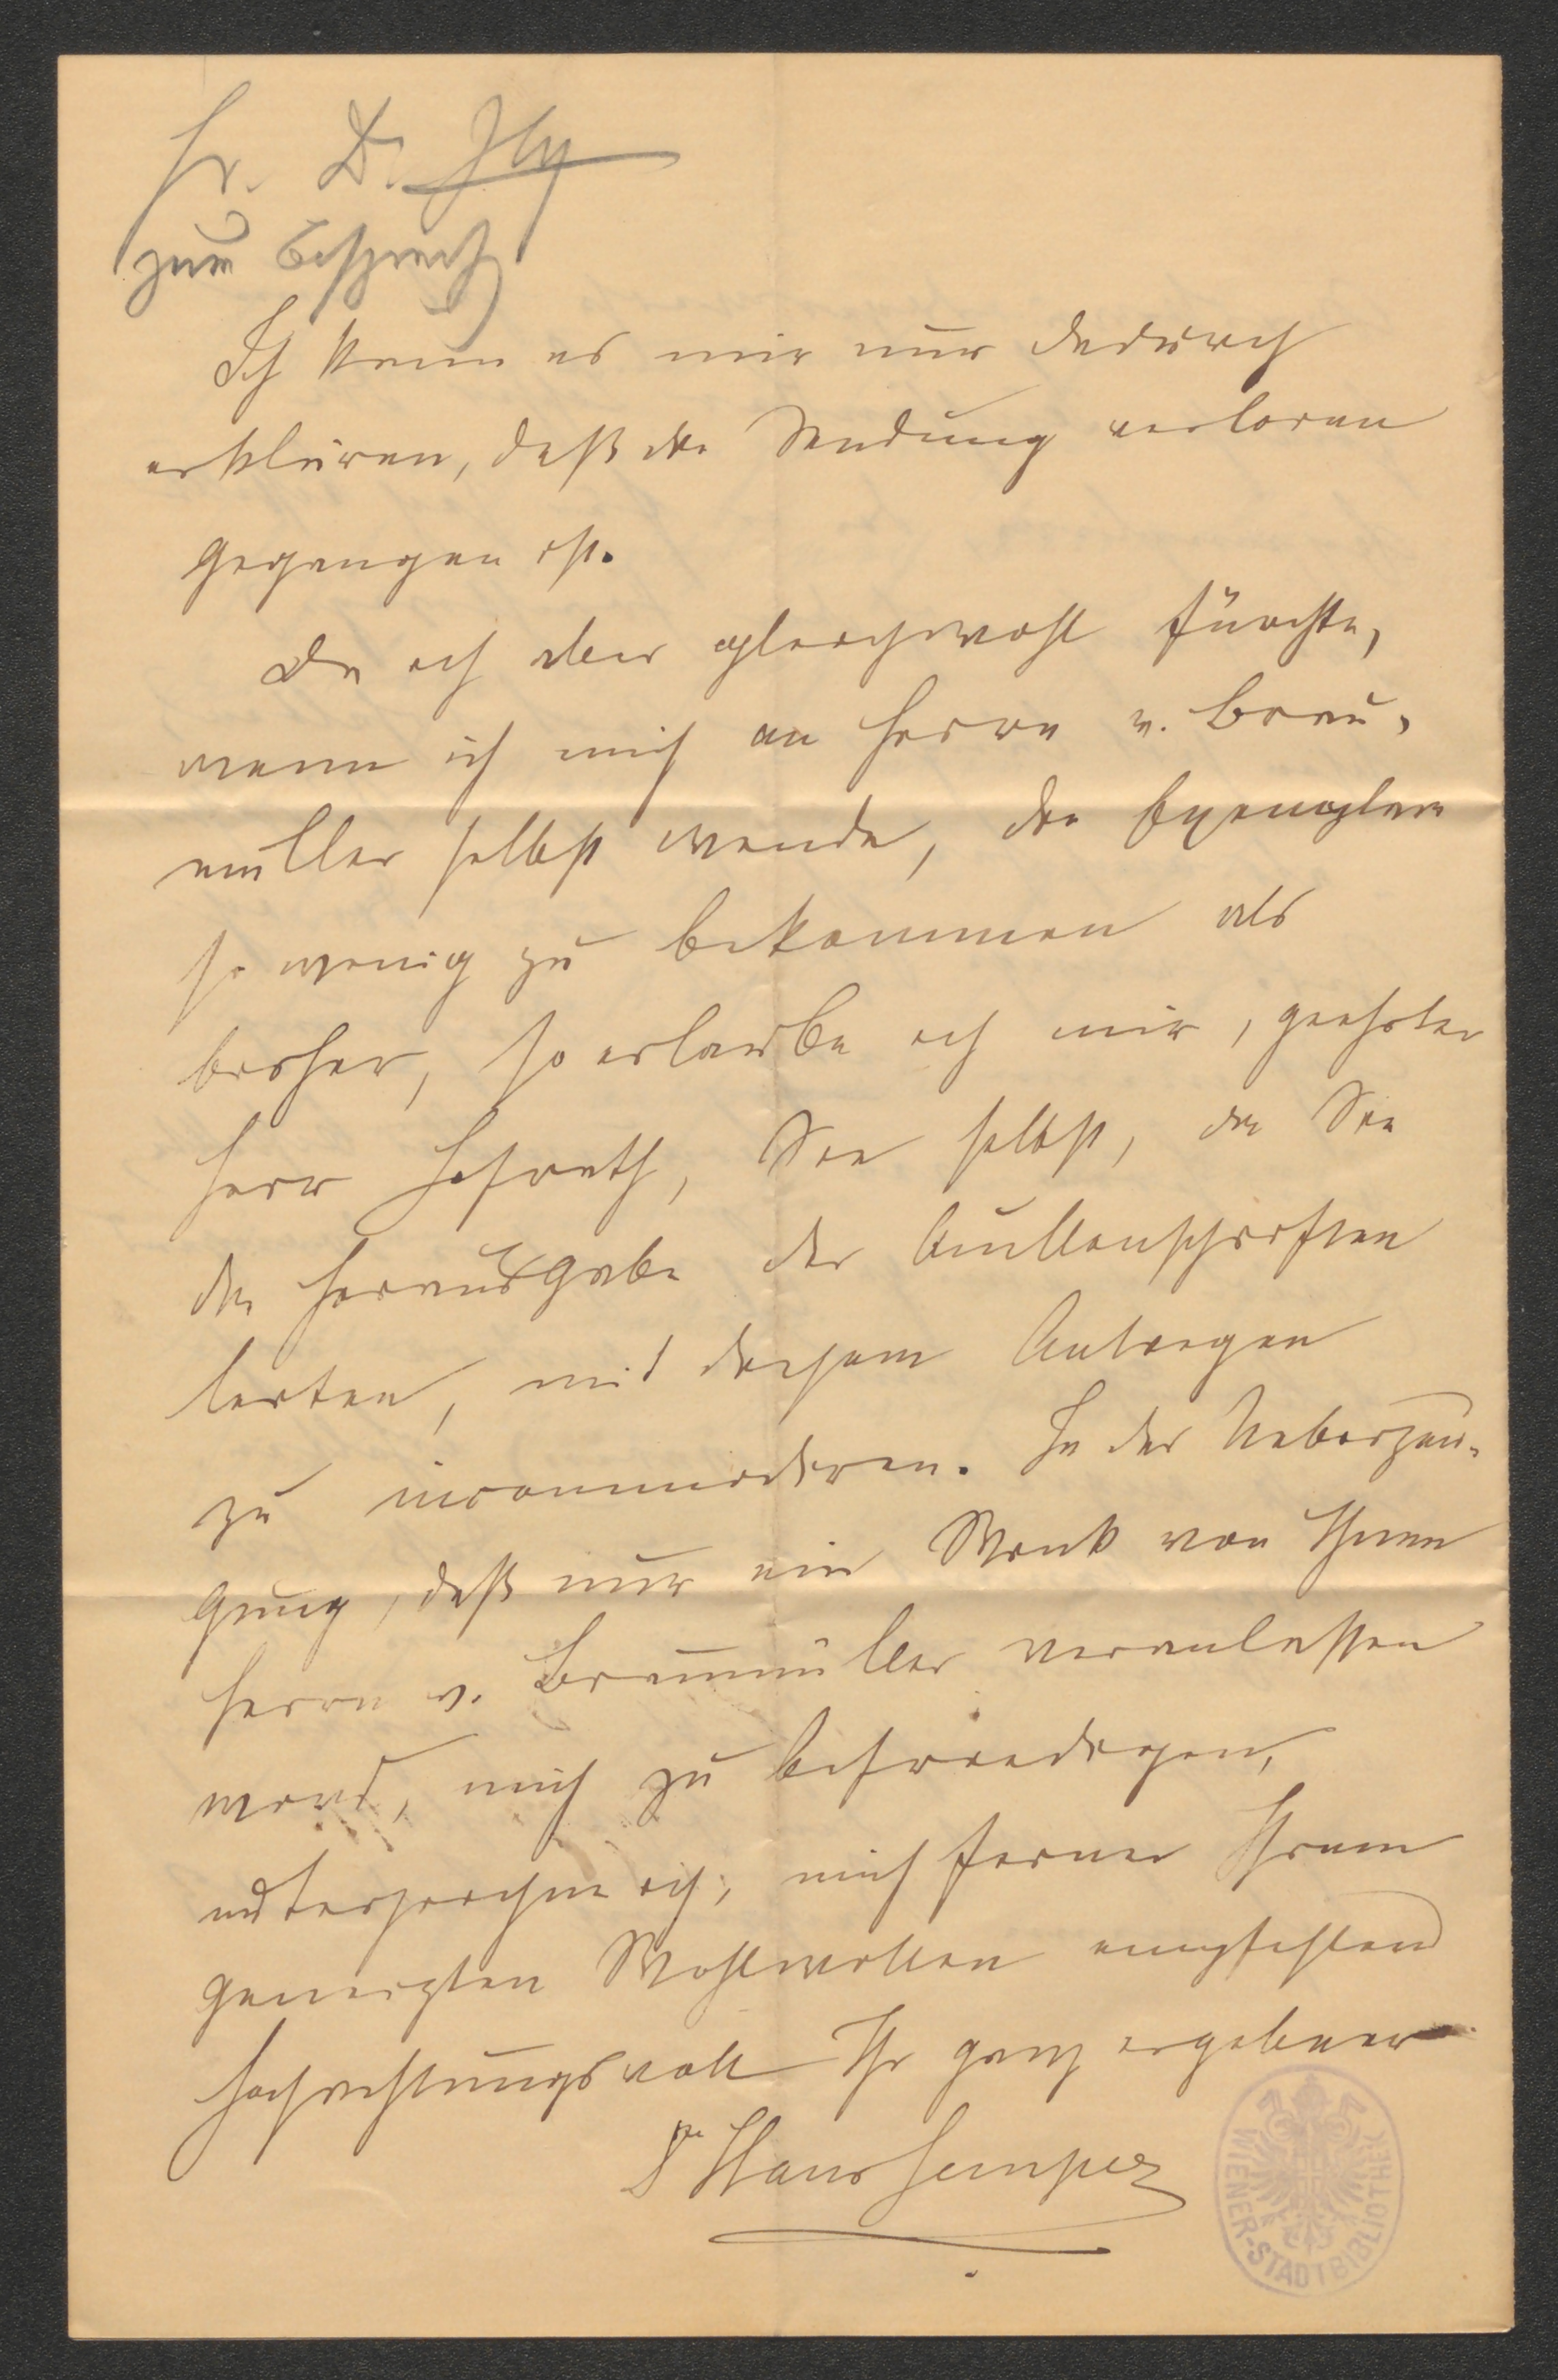 Hr. Dr. Ilg
zum Gespräch
Ich kann es mir nur dadurch
erklären, daß die Sendung verloren
gegangen ist.
Da ich aber gleichwohl fürchte,
wenn ich mich an Herrn v. Brau-
müller selbst wende, die Exemplare
so wenig zu bekommen als
bisher, so erlaube ich mir, geehrter
Herr Hofrath, Sie selbst, da Sie
die Herausgabe der Quellenschriften
leiten, mit diesem Anliegen
zu incommodiren. In der Ueberzeu-
gung, daß nur ein Wink von Ihnen
Herrn v. Braumüller veranlassen
wird, mich zu befriedigen,
unterzeichne ich, mich ferner Ihrem
geneigten Wohlwollen empfehlend
hochachtungsvoll Ihr ganz ergebener
Dr Hans Semper
WIENER-STADTBIBLIOTHEK